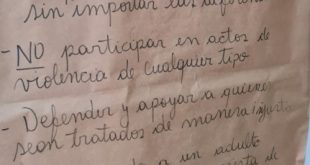 sin importar las diferen
- NO participar en actos de
violencia de cualquier tipo
- Defender y apoyar a quienes
sean tratados de manera injusta
a un adulto
de